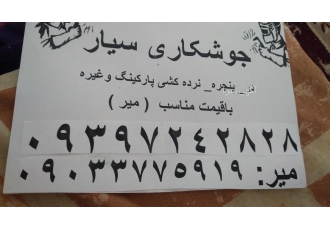 جوشکاری سیار
در_ پنجره_ نرده کشی پارکینگ و غیره
باقیمت مناسب ( میر )
۰۹۳۹۷۲۴۲۸۲۸
میر: ۰۹۰۳۳۷۷۵۹۱۹